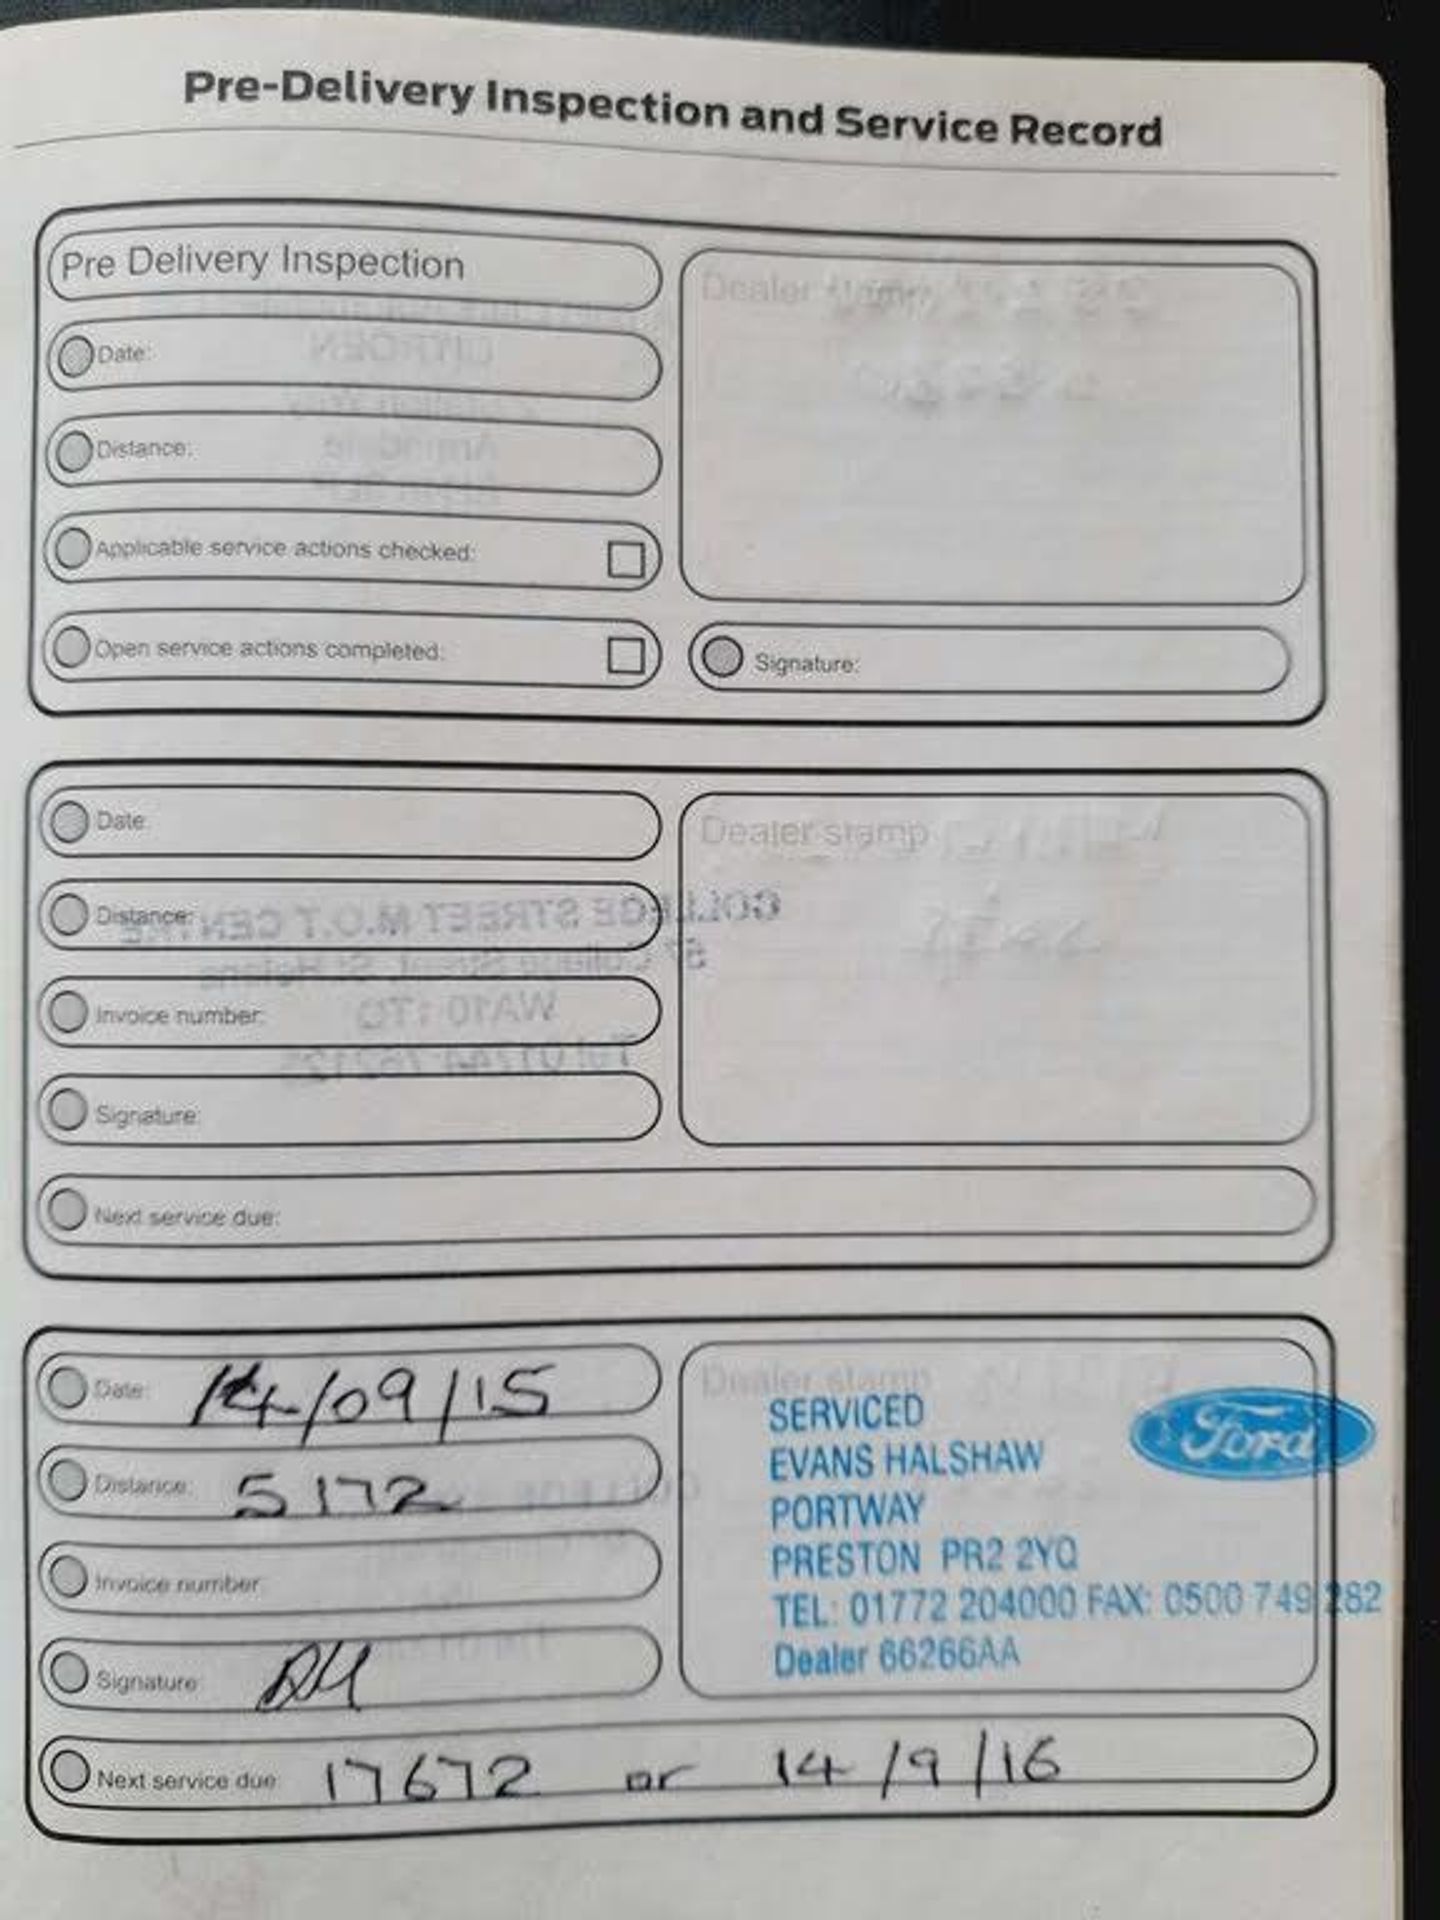 Pre-Delivery Inspection and Service Record
Pre Delivery Inspection
Date:
Distance:
Applicable service actions checked:
Open service actions completed:
Dealer stamp
Signature:
Date:
Distance:
Invoice number:
Signature:
Dealer stamp
COLLEGE STREET M.O.T CENTRE
57 College Street, St Helens
WA10 1TQ
Next service due:
Date: 14/09/15
Distance: 5172
Invoice number:
Signature:
Dealer stamp
SERVICED
EVANS HALSHAW
PORTWAY
PRESTON PR2 2YQ
TEL: 01772 204000 FAX: 0500 749 282
Dealer 66266AA
Ford
Next service due: 17672 or 14/9/16